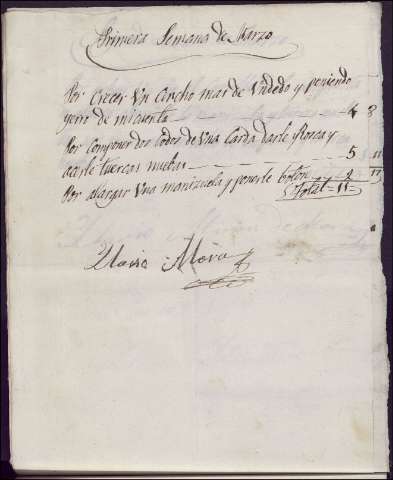 Primera Semana de Marzo
Por Crecer Un Circho mas de Un dedo y poniendo
yerro de mi cuenta 4
Por componer dos codos de una Carda darle Rosca y
acerle tuercas nuebas 5
Por alargar Una manizuela y ponerle boton 2
Total = 11
Mora